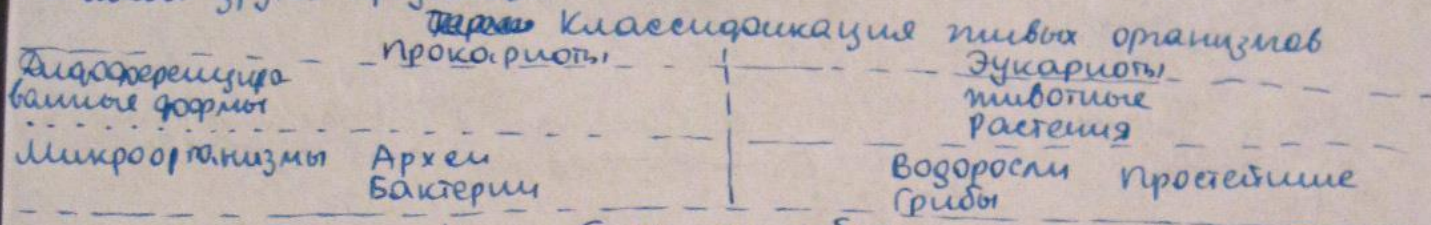 Классификация живых организмов
Прокариоты Эукариоты
Дифференциро
ванные формы животные
Растения
Микроорганизмы Археи Водоросли Простейшие
Бактерии Грибы